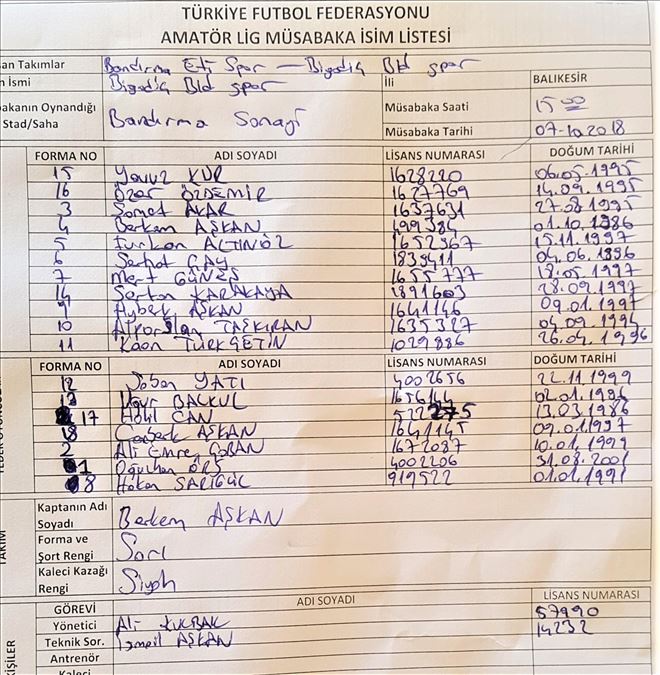 TÜRKİYE FUTBOL FEDERASYONU
AMATÖR LİG MÜSABAKA İSİM LİSTESİ
an Takımlar Bandırma Eti Spor — Bigadiç Bld spor
n İsmi Bigadiç Bld spor İli BALIKESİR
bakanın Oynandığı Stad/Saha Bandırma Sanayi Müsabaka Saati 15 00
Müsabaka Tarihi 07-10 2018
FORMA NO ADI SOYADI LİSANS NUMARASI DOĞUM TARİHİ
15 Yavuz KUR 1628220 06.05.1995
16 Özar ÖZDEMİR 1627769 14.09.1995
3 Samet AKAR 1637631 27.08.1995
4 Berkem AŞKAN 499384 01.10.1986
5 Furkan ALTINÖZ 1652967 15.11.1997
6 Serhat ÇAY 1839411 04.06.1996
7 Mert GÜNEŞ 1655777 18.05.1997
14 Serkan KARAKAYA 1891603 28.09.1997
9 Aybek AŞKAN 1641146 09.01.1997
10 Alparslan TAŞKIRAN 1635327 04.09.1994
11 Kaan TÜRKÇETİN 1029886 26.04.1996
FORMA NO ADI SOYADI LİSANS NUMARASI DOĞUM TARİHİ
12 Şaban YATI 4002656 22.11.1999
13 Uğur BALKUL 1656144 02.01.1986
17 Halil CAN 522275 13.03.1986
18 Canbek AŞKAN 1641145 09.01.1997
2 Ali Emre ÇOBAN 1672087 10.01.1999
1 Oğuzhan ÖRS 4002206 31.08.2001
8 Hakan SARIGÜL 919522 01.01.1991
Kaptanın Adı Soyadı Berkem AŞKAN
TAKIM
Forma ve Şort Rengi Sarı
Kaleci Kazağı Rengi Siyah
GÖREVİ ADI SOYADI LİSANS NUMARASI
Yönetici Ali 57990
Teknik Sor. İsmail AŞKAN 14232
Antrenör
Kaleci
KİŞİLER